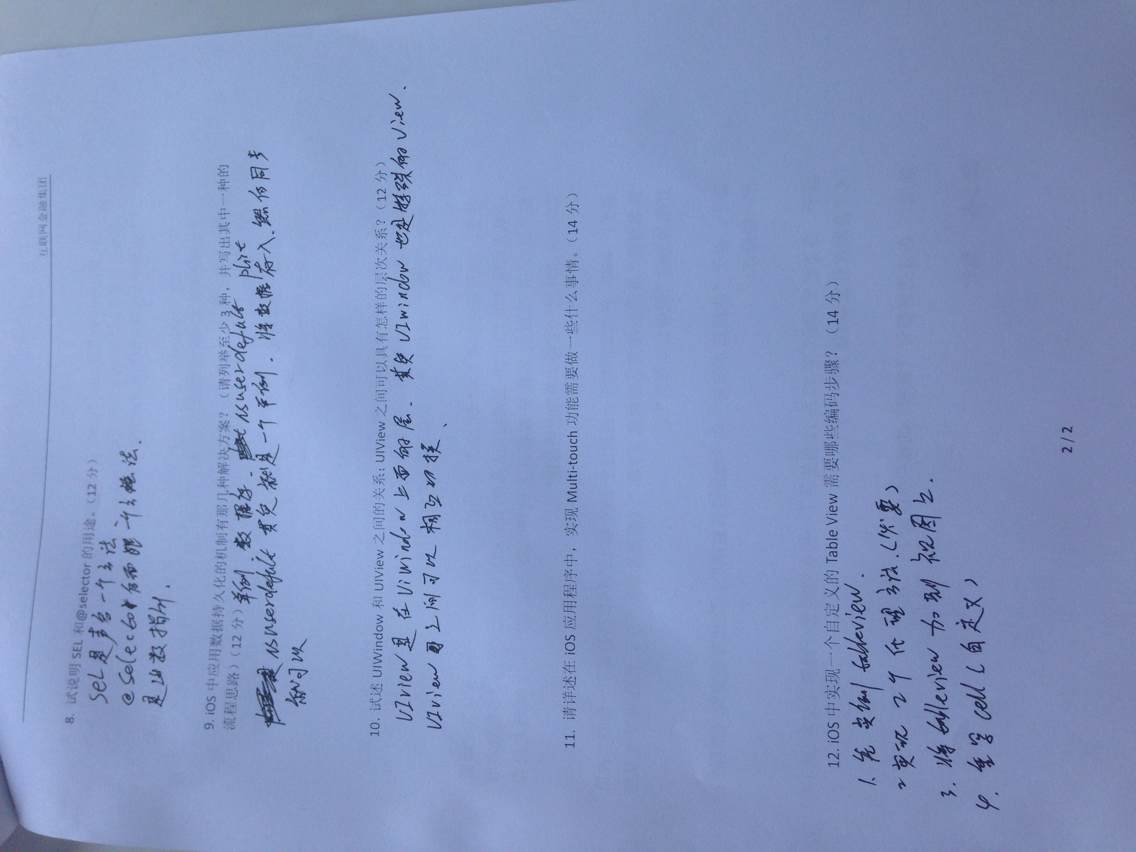 互联网金融集团
8. 试说明 SEL 和@selector 的用途。（12 分）
SEL是声名一个方法、
@selector后面跟一个方法.
是函数指针.
9. iOS 中应用数据持久化的机制有那几种解决方案？（请列举至少 3 种，并写出其中一种的
流程思路）（12 分）单例、数据库、nsuserdefult plist
nsuserdefult 其实就是一个单例. 将数据存入.然后同步
就可以
10. 试述 UIWindow 和 UIView 之间的关系；UIView 之间可以具有怎样的层次关系？（12 分）
UIview 是在Uiwindow 上面的层. 其实UIwindow 也是特殊的View.
UIview 之间可以相互切换、
11. 请详述在 iOS 应用程序中，实现 Multi-touch 功能需要做一些什么事情。（14 分）
12. iOS 中实现一个自定义的 Table View 需要哪些编码步骤？（14 分）
1. 先实例tableview.
2 实现2个代理方法.(必要)
3. 将tableview加到视图上.
4. 重写cell(自定义)
2 / 2